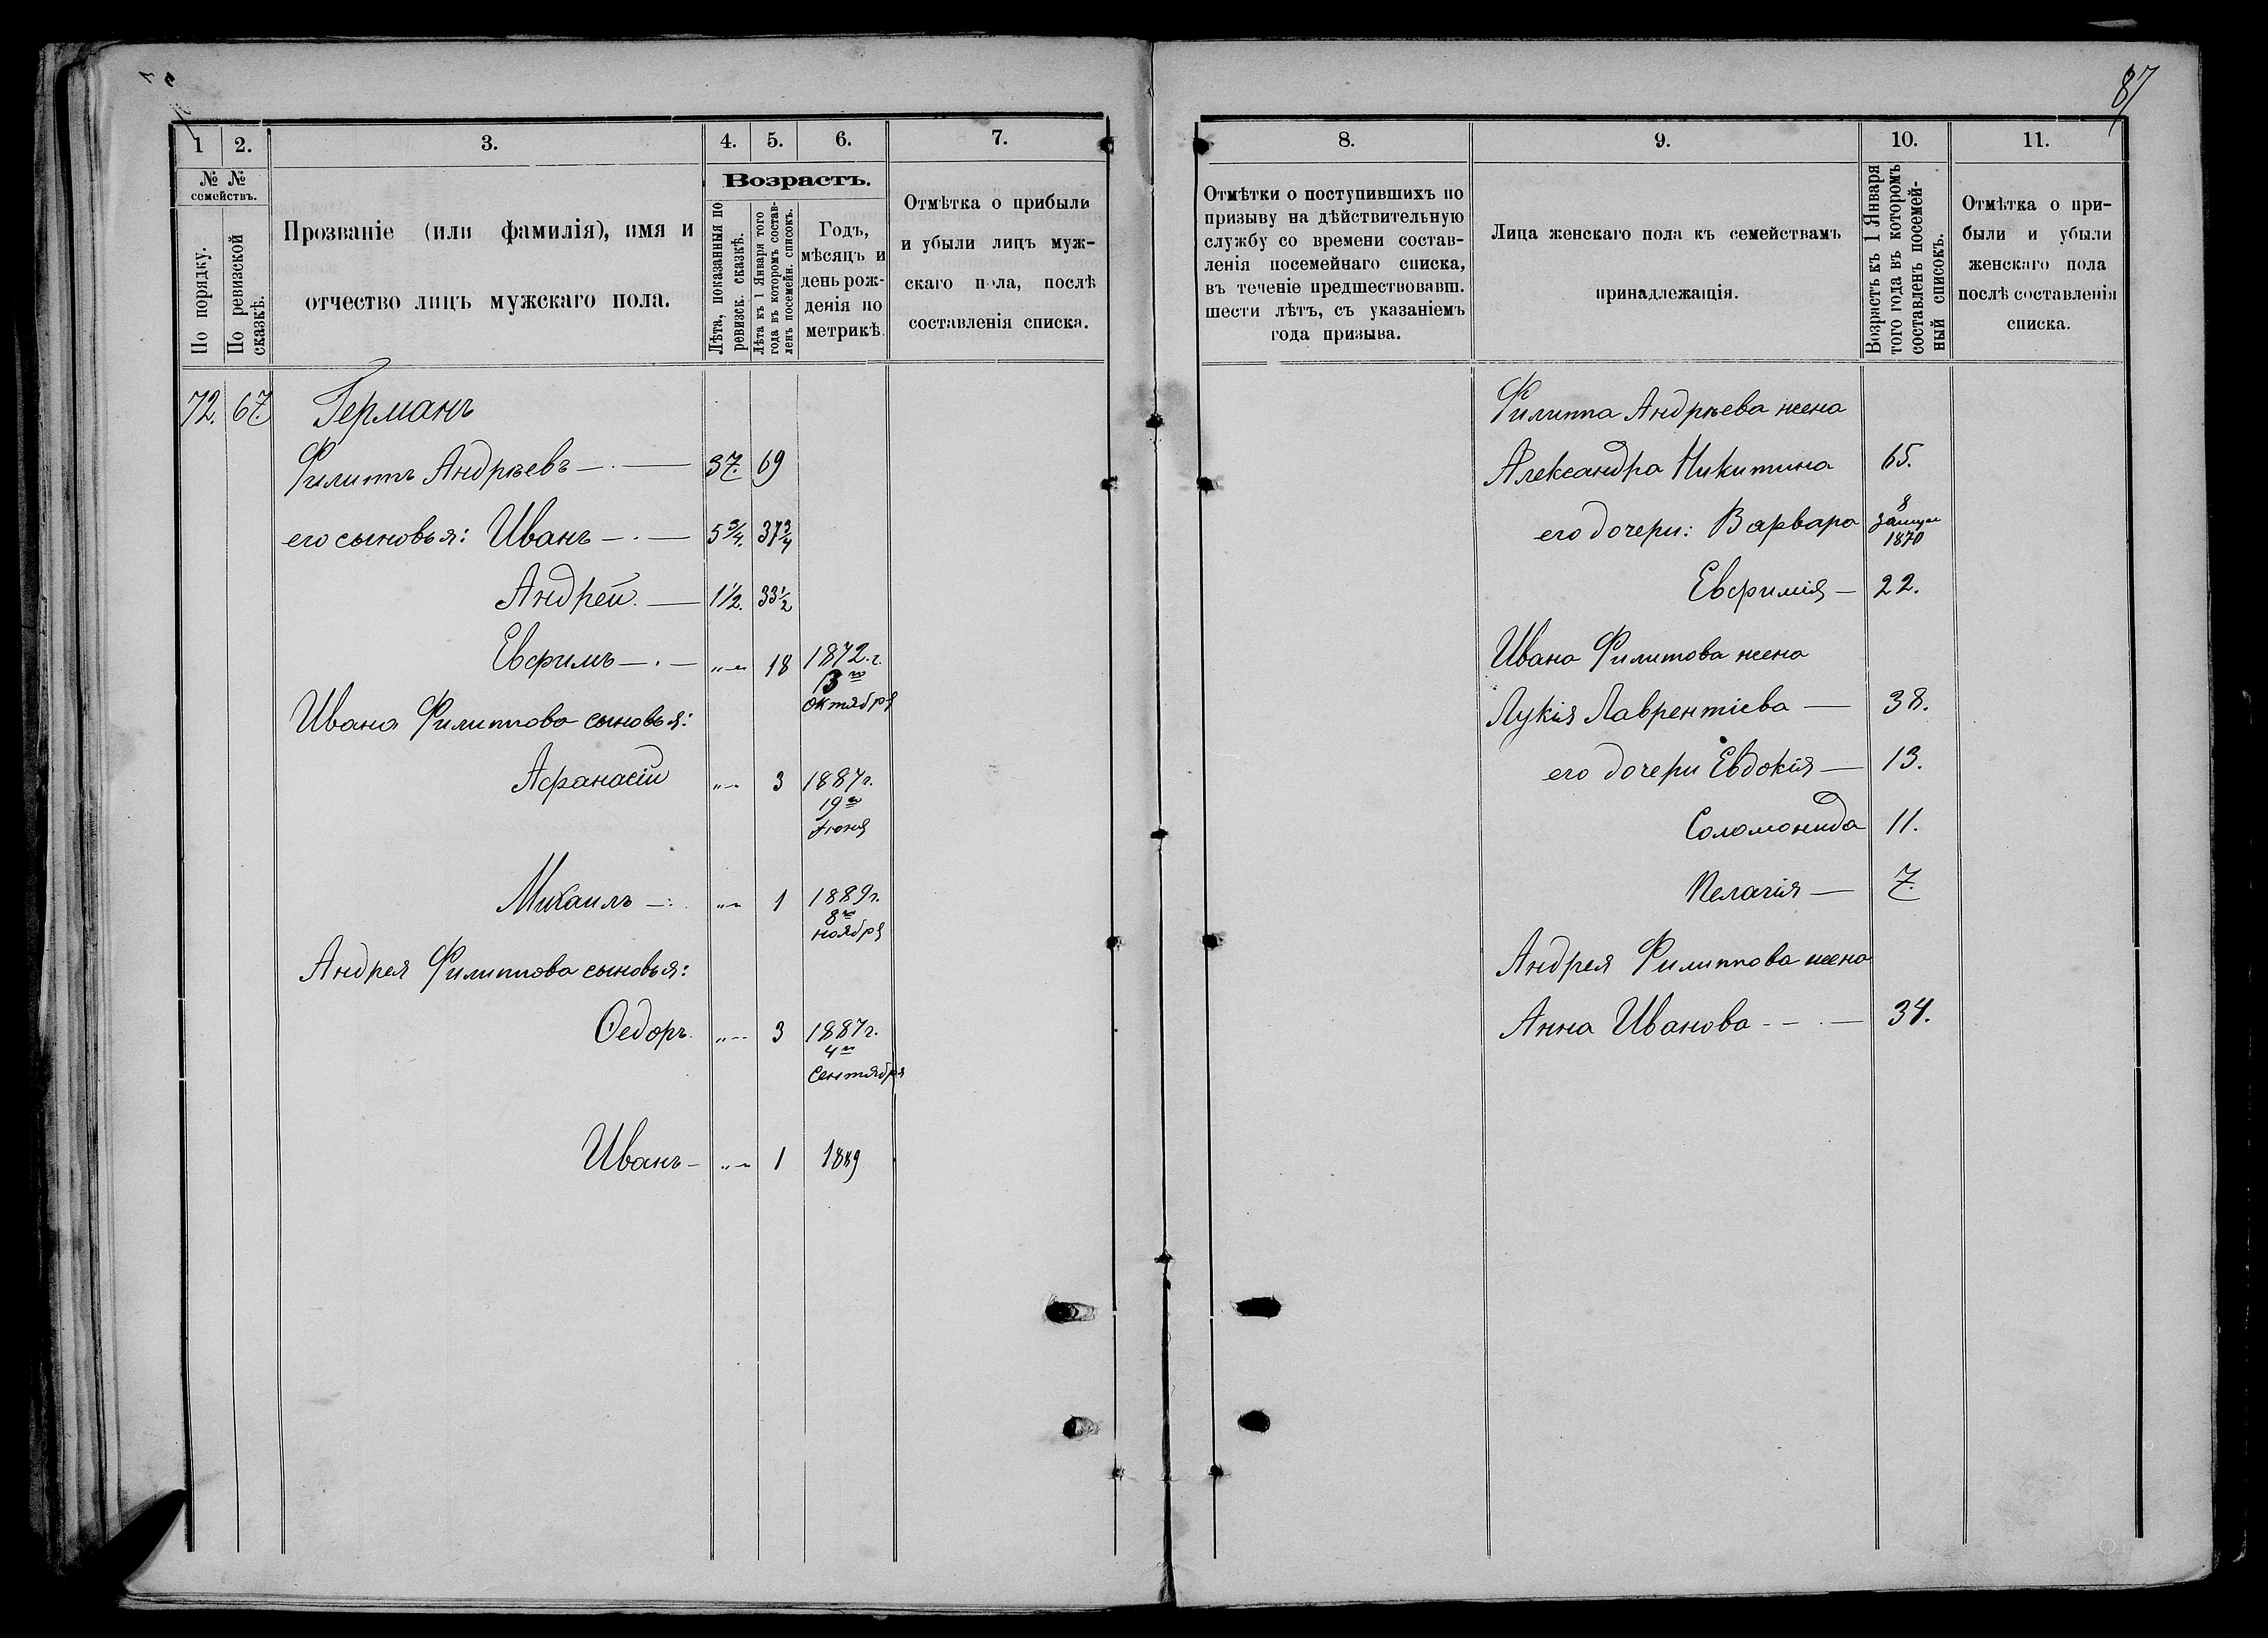 87
1 2. 3. 4. 5. 6. 7.
№ № семействъ.
По порядку.
По ревизской сказкѣ.
Прозваніе (или фамилія), имя и
отчество лицъ мужскаго пола.
Возрастъ.
Лѣта, показанныя по
ревизск. сказкѣ.
Лѣта къ 1 Января того
года въ которомъ состав-
ленъ посемейн. списокъ.
Годъ,
мѣсяцъ и
день рож-
денія по
метрикѣ.
Отмѣтка о прибыли
и убыли лицъ муж-
скаго пола, послѣ
составленія списка.
72. 67. Германъ
Филиппъ Андрѣевъ 37. 69
его сыновья: Иванъ 5 3/4. 37 3/4
Андрей 1 1/2. 33 1/2
Евфимъ „—„ 18 1872 г.
3го
октября
Ивана Филиппова сыновья:
Афанасій „—„ 3 1887 г.
19го
Іюня
Михаилъ „—„ 1 1889 г.
8го
ноября
Андрея Филиппова сыновья:
Ѳедоръ „—„ 3 1887 г.
4го
Сентября
Иванъ „—„ 1 1889
8. 9. 10. 11.
Отмѣтки о поступившихъ по
призыву на дѣйствительную
службу со времени состав-
ленія посемейнаго списка,
въ теченіе предшествовавш.
шести лѣтъ, съ указаніемъ
года призыва.
Лица женскаго пола къ семействамъ
принадлежащія.
Возрастъ къ 1 Января
того года въ которомъ
составленъ посемей-
ный списокъ.
Отмѣтка о при-
были и убыли
женскаго пола
послѣ составленія
списка.
Филиппа Андрѣева жена
Александра Никитина 65.
его дочери: Варвара
1870
Евфимія 22.
Ивана Филиппова жена
Лукія Лаврентіева 38.
его дочери Евдокія 13.
Соломонида 11.
Пелагія 7.
Андрея Филиппова жена
Анна Иванова 34.